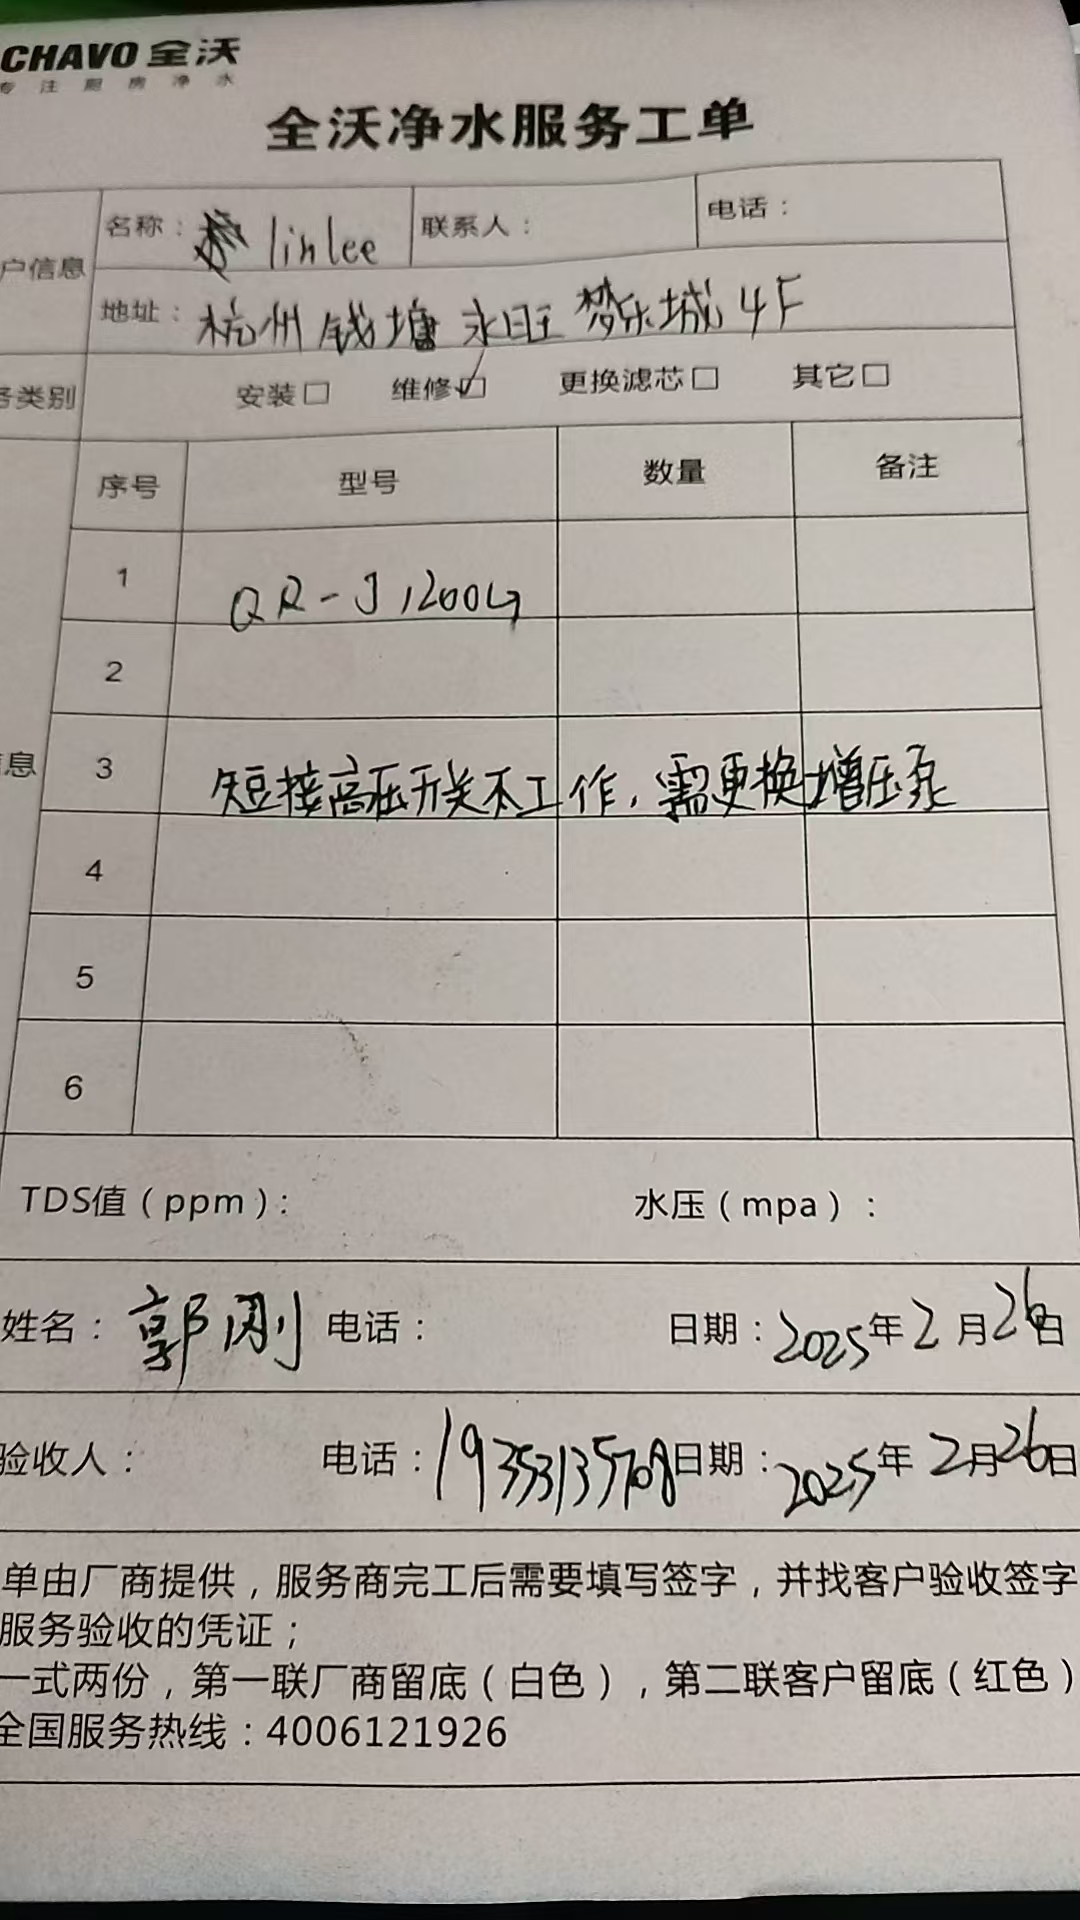 CHAVO 全沃
专注厨房净水
全沃净水服务工单
名称： linlee 联系人： 电话：
户信息
地址：杭州钱塘永旺梦乐城4F
务类别 安装□ 维修☑ 更换滤芯□ 其它□
序号 型号 数量 备注
1 QR-J1200G
2
息 3 短接高压开关不工作，需更换增压泵
4
5
6
TDS值（ppm）： 水压（mpa）：
姓名：郭刚 电话： 日期：2025年2月26日
验收人： 电话：19353135708 日期：2025年2月26日
单由厂商提供，服务商完工后需要填写签字，并找客户验收签字
服务验收的凭证；
一式两份，第一联厂商留底（白色），第二联客户留底（红色）
全国服务热线：4006121926